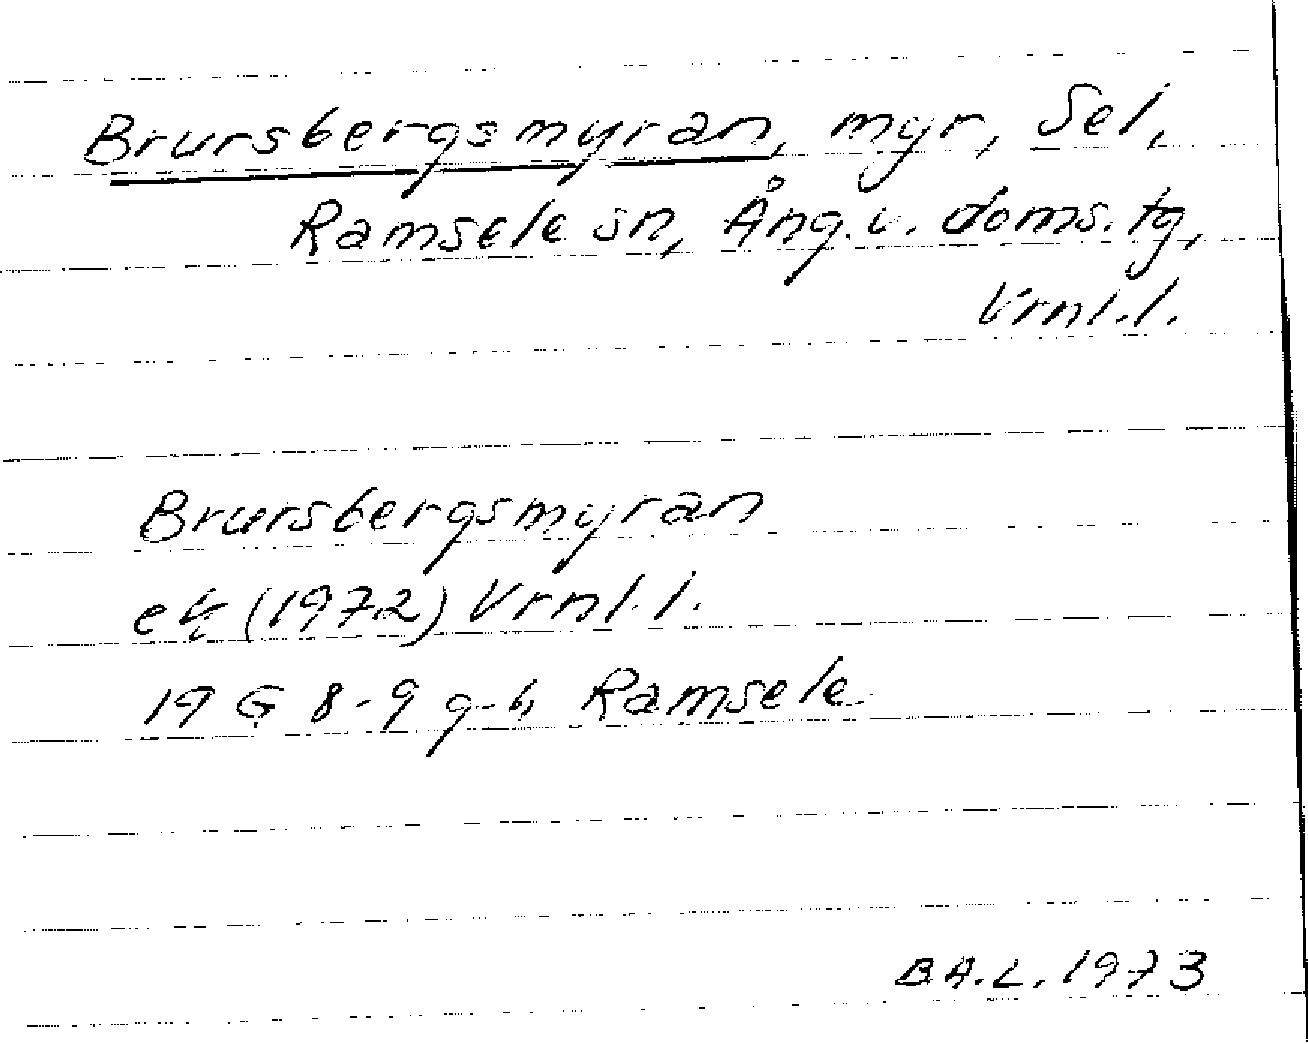 Brursbergsmyran, myr, Sel,
Ramsele sn, Ång. v. doms. tg,
Vrnl. l.
Brursbergsmyran
ek (1972) Vrnl. l.
19 G 8-9 g-h Ramsele
B.A.L. 1973